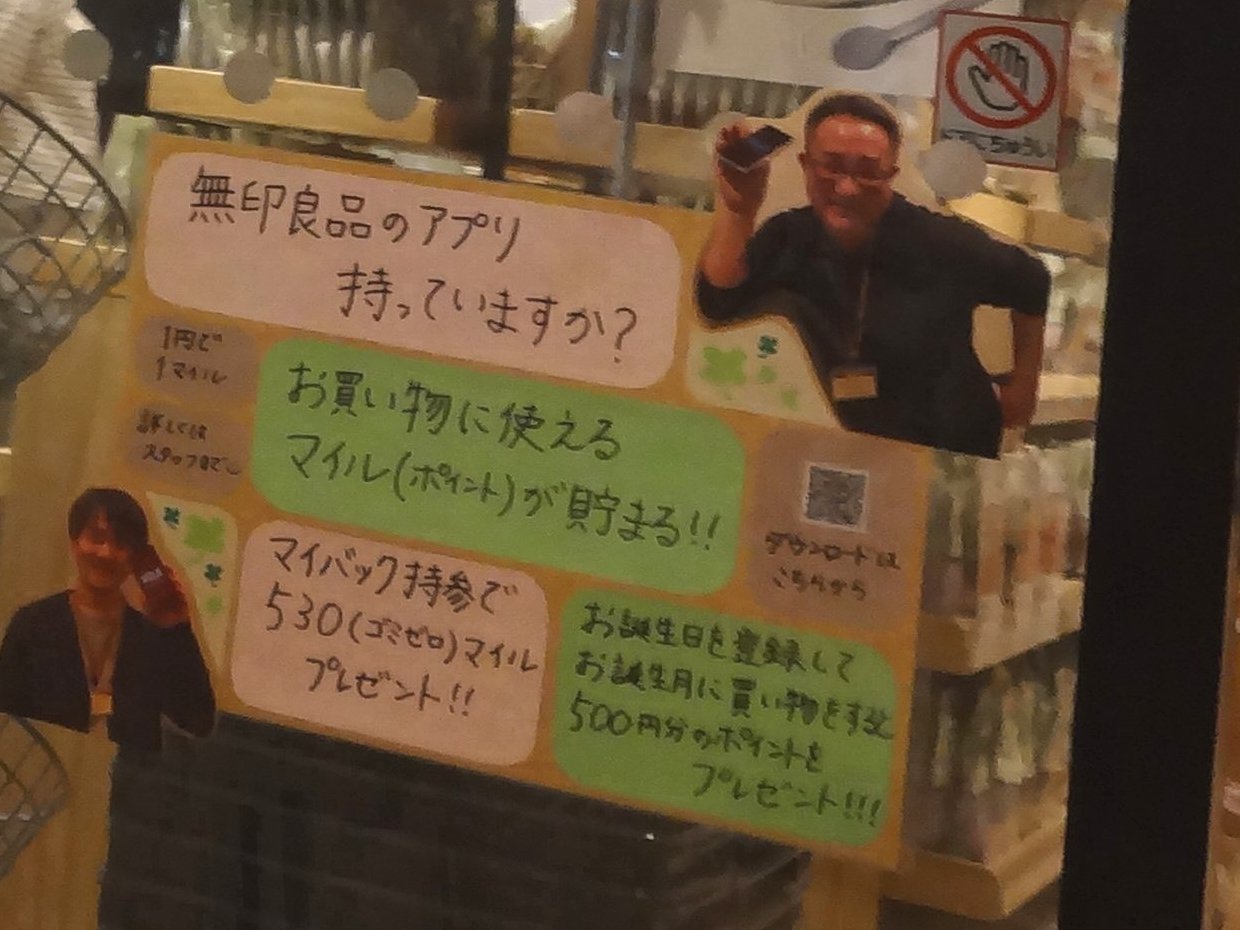 無印良品のアプリ
持っていますか?
1円で
1マイル
詳しくは
スタッフまで
お買い物に使える
マイル(ポイント)が貯まる!!
ダウンロードは
こちらから
マイバック持参で
530(ゴミゼロ)マイル
プレゼント!!
お誕生日を登録して
お誕生月に買い物をすると
500円分のポイントを
プレゼント!!!